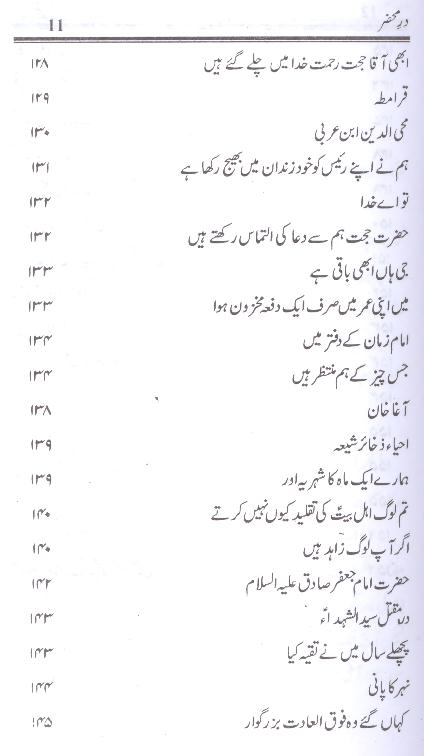 در محضر 11
ابھی آقا حجت رحمت خدا میں چلے گئے ہیں ۱۲۸
قرامطہ ۱۲۹
محی الدین ابن عربی ۱۳۰
ہم نے اپنے رئیس کو خود زندان میں بھیج رکھا ہے ۱۳۱
تو اے خدا ۱۳۲
حضرت حجت ہم سے دعا کی التماس رکھتے ہیں ۱۳۲
جی ہاں ابھی باقی ہے ۱۳۳
میں اپنی عمر میں صرف ایک دفعہ مخزون ہوا ۱۳۳
امام زمان کے دفتر میں ۱۳۴
جس چیز کے ہم منتظر ہیں ۱۳۴
آغا خان ۱۳۸
احیاء ذخائر شیعہ ۱۳۹
ہمارے ایک ماہ کا شہریہ اور ۱۳۹
تم لوگ اہل بیتؑ کی تقلید کیوں نہیں کرتے ۱۴۰
اگر آپ لوگ زاہد ہیں ۱۴۰
حضرت امام جعفر صادق علیہ السلام ۱۴۲
در مقتل سید الشہداءؑ ۱۴۳
پچھلے سال میں نے تقیہ کیا ۱۴۳
نہر کا پانی ۱۴۴
کہاں گئے وہ فوق العادت بزرگوار ۱۴۵